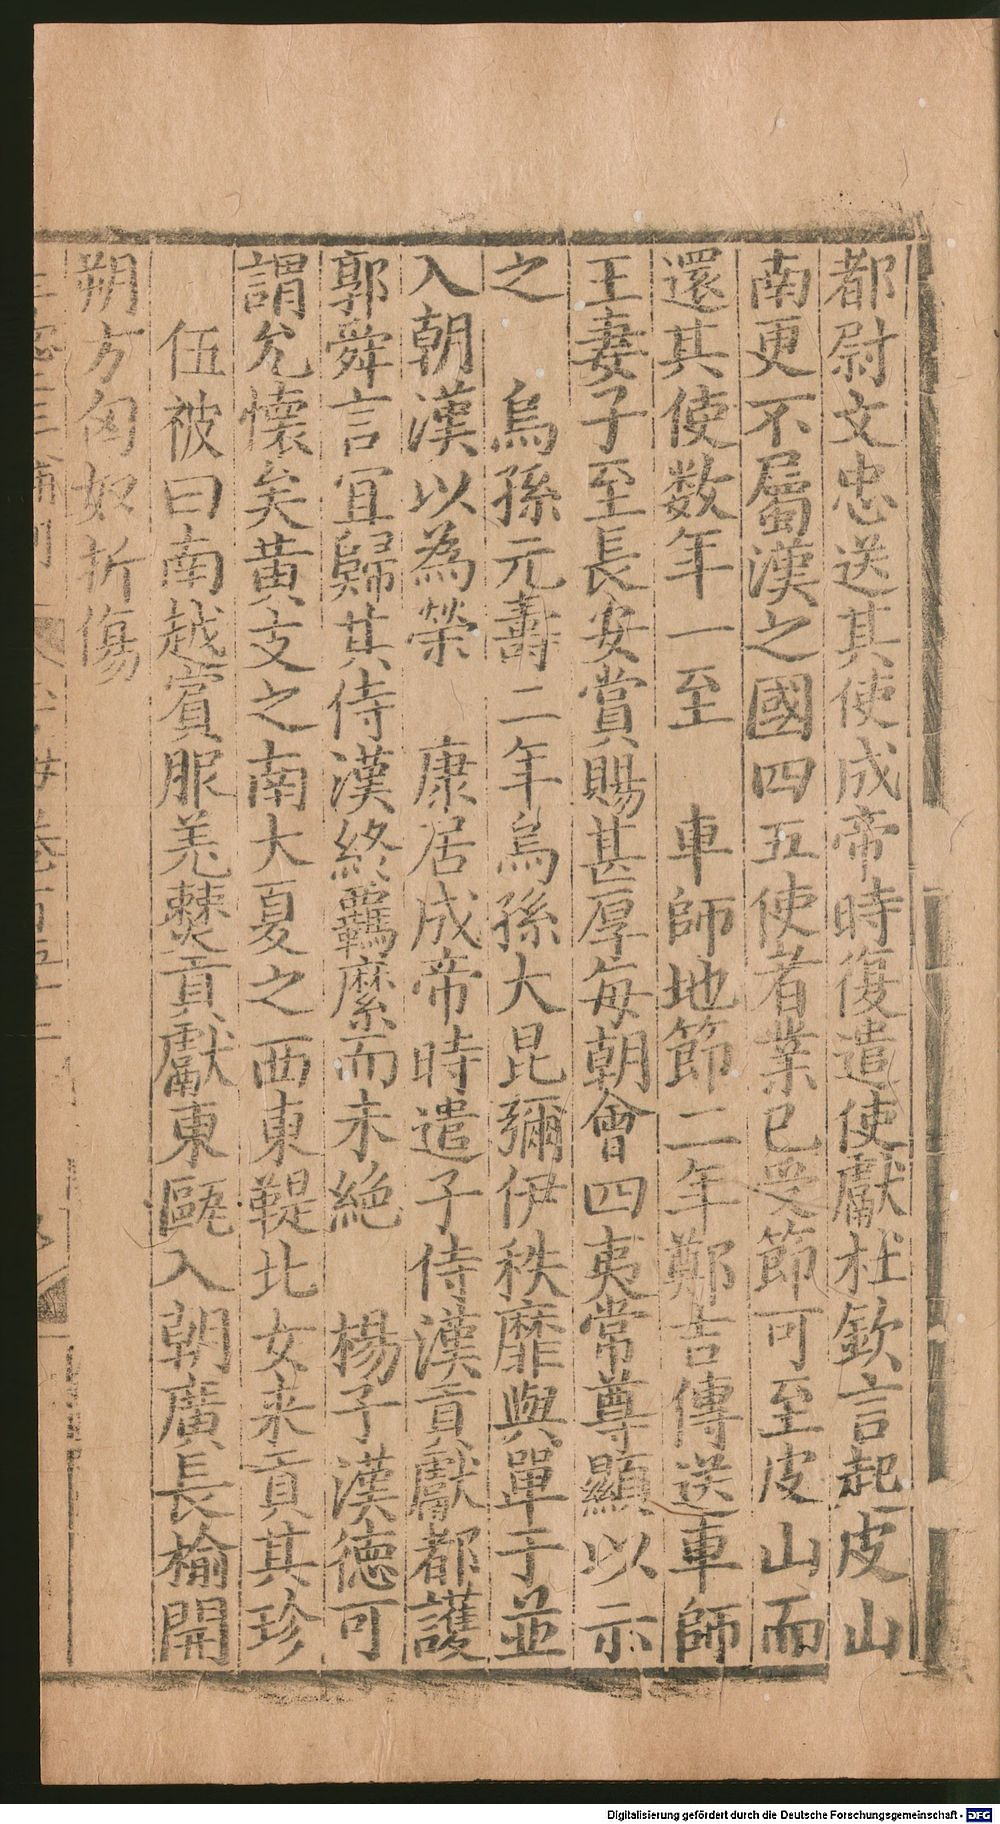 都尉文忠送其使成帝時復遣使獻杜欽言起皮山
南更不屬漢之國四五使者業已受節可至皮山而
還其使数年一至　車師地節二年鄭吉傳送車師
王妻子至長安賞賜甚厚每朝會四夷常尊顯以示
之　烏孫元壽二年烏孫大昆彌伊秩靡與單于並
入朝漢以為榮　康居成帝時遣子侍漢貢獻都護
郭舜言宜歸其侍漢終羈縻而未絶　楊子漢德可
謂允懷矣黄支之南大夏之西東鞮北女来貢其珍
伍被曰南越賓服羌僰貢獻東甌入朝廣長榆開
朔方匈奴折傷
Digitalisierung gefördert durch die Deutsche Forschungsgemeinschaft - DFG